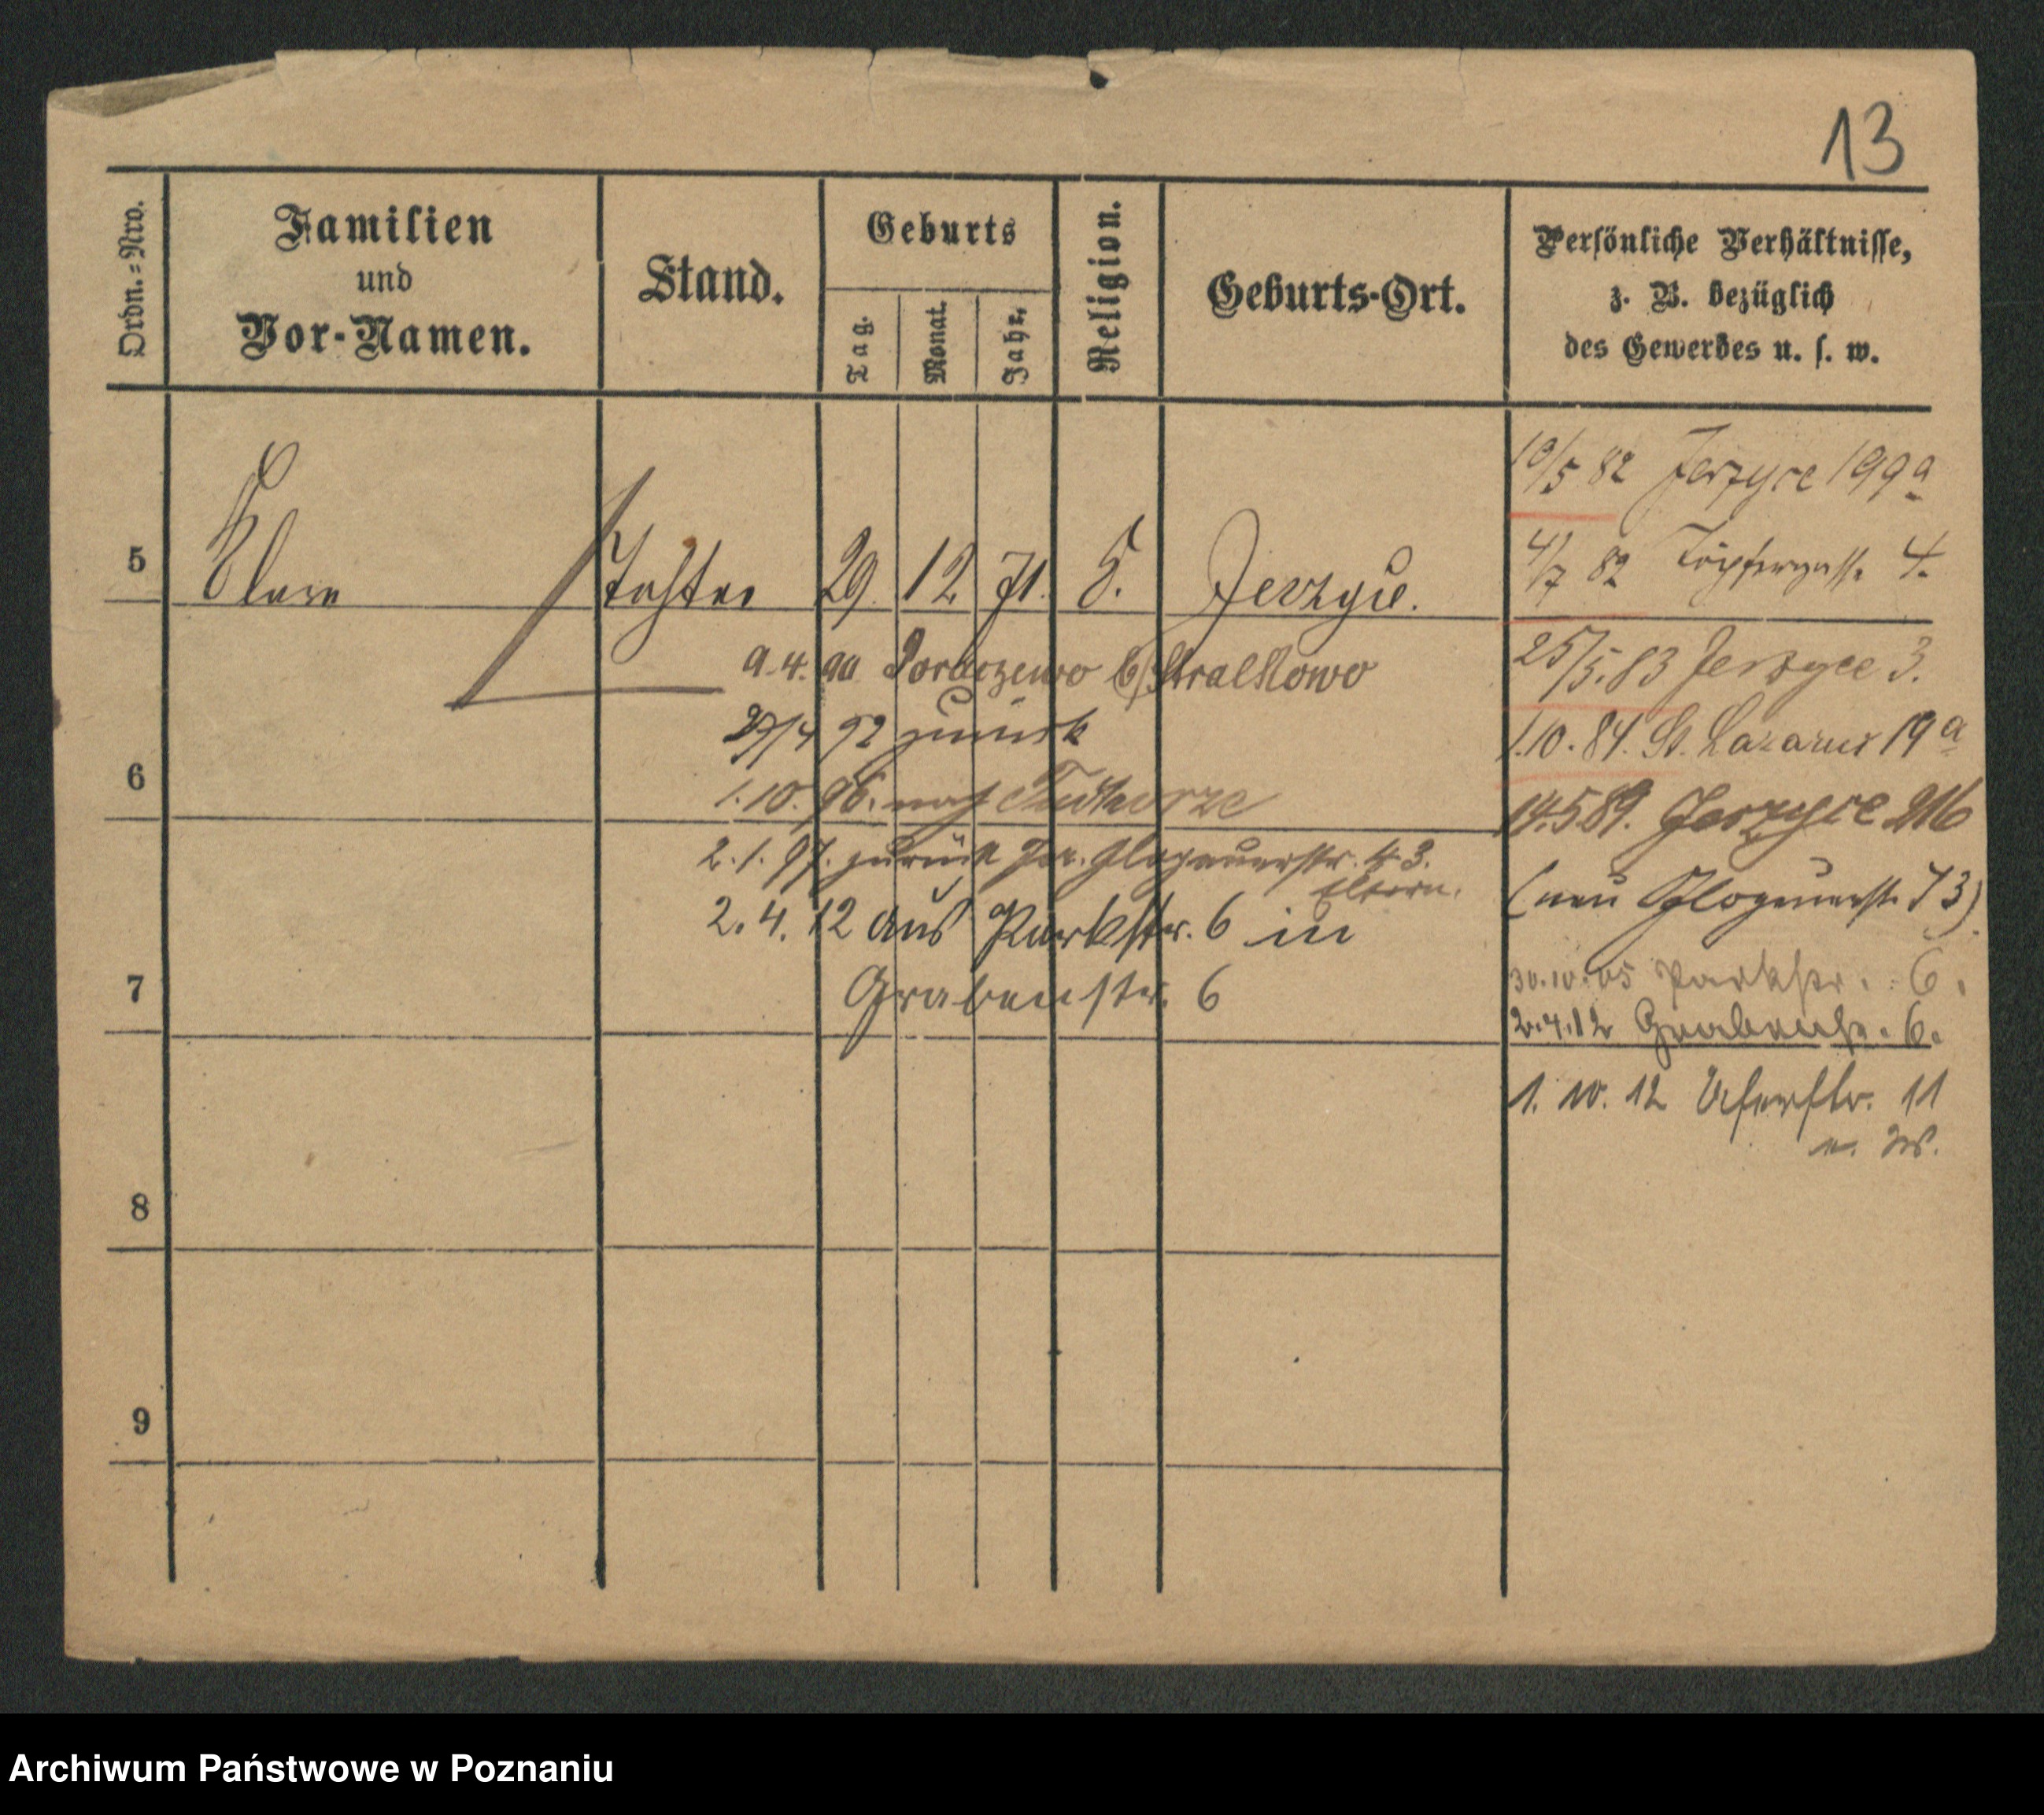 13
Ordn.=Nro.
Familien
und
Vor-Namen.
Stand.
Geburts
Tag.
Monat.
Jahr.
Religion.
Geburts-Ort.
Persönliche Verhältnisse,
z. B. bezüglich
des Gewerbes u. s. w.
5 Clara Tochter 29. 12 71. Jerzyce.
6
7
8
9
4. an b/Stralkowo
27/4 92 zurück
1. 10. 96. nach
2. 1. 97. zurück Jer. Glogauerstr. 43.
Eltern.
2. 4. 12 aus Parkstr. 6 in
Grabenstr. 6
19/5 82 Jerzyce 199a
4/7 82 Töpfergasse 4.
25/5.83 Jerzyce 3.
1.10.84. St. Lazarus 19a
14.5.89. Jerzyce
(neu Glogauerstr. 73)
30.10.05 Parkstr. 6.
2.4.12 Grabenstr. 6.
1. 10. 12 Uferstr. 11
Archiwum Państwowe w Poznaniu